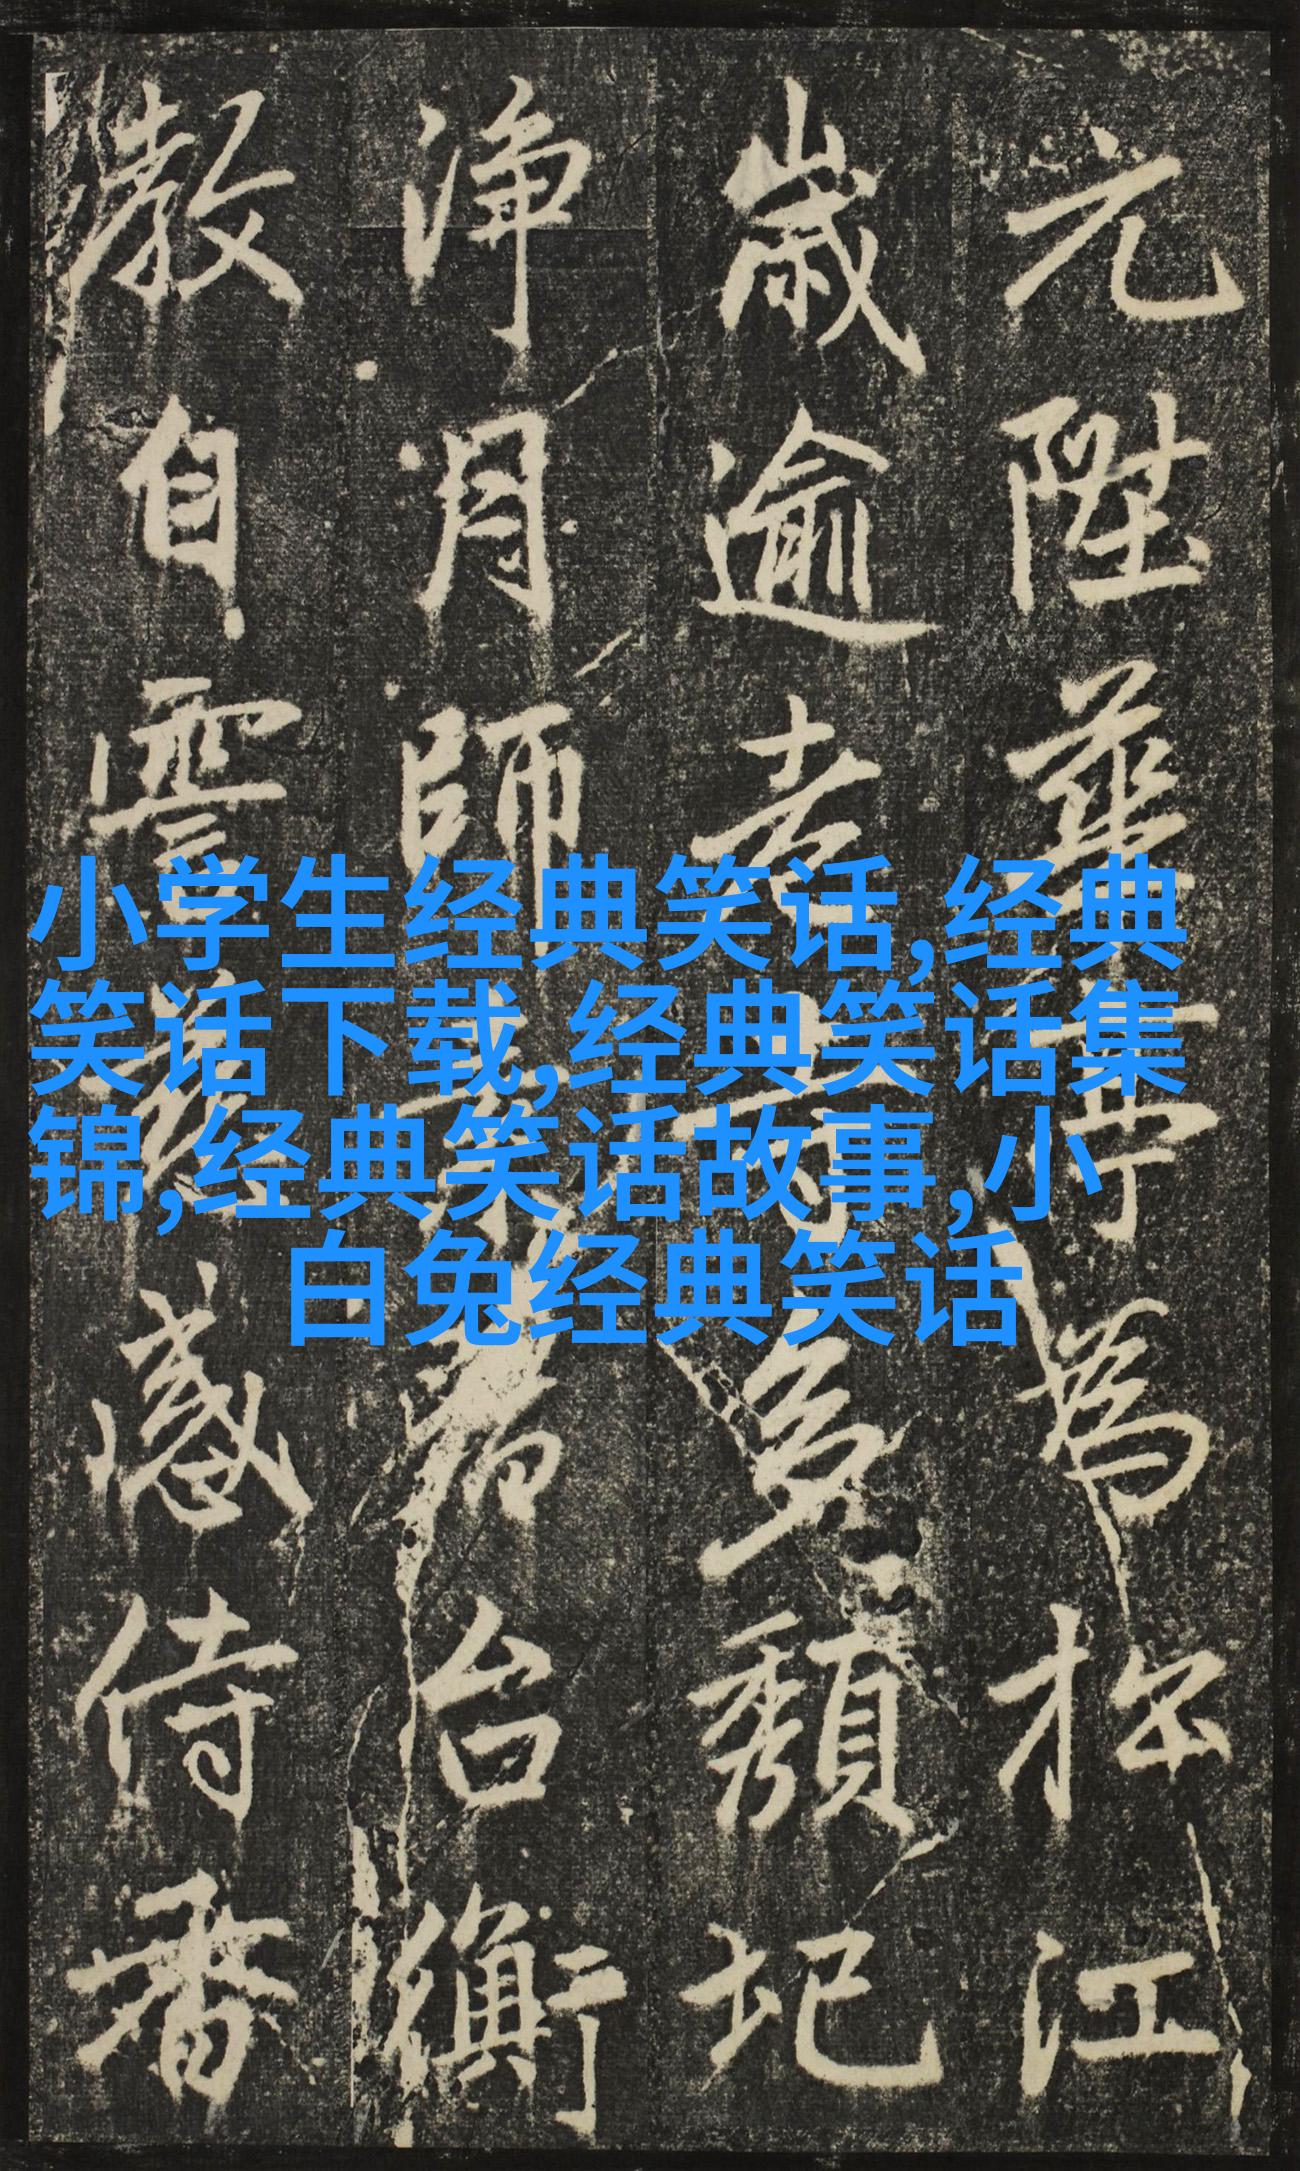 小学生经典笑话,经典
笑话下载,经典笑话集
锦,经典笑话故事,小
白兔经典笑话
元陞華為扵江
歲逾老多頹圮
淨月師台衡
教自雲感侍香